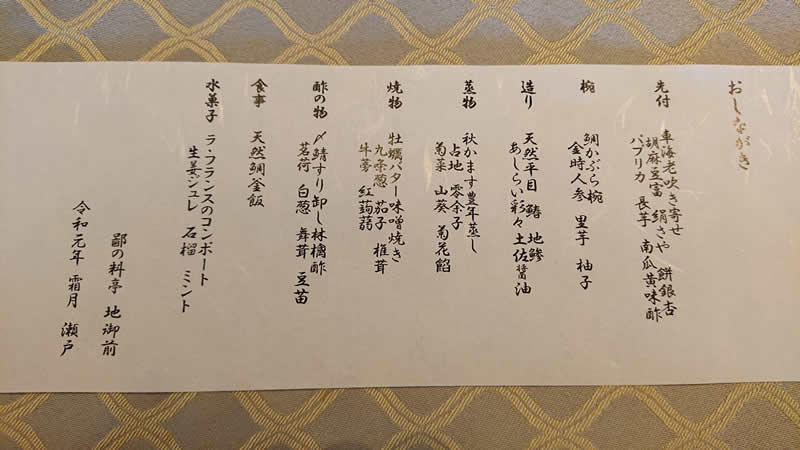 おしながき
先付
車海老吹き寄せ
胡麻豆富 絹さや 餅銀杏
パプリカ 長芋 南瓜黄味酢
椀
鯛かぶら椀
金時人参 里芋 柚子
造り
天然平目 鰆 地鯵
あしらい彩々 土佐醤油
蒸物
秋かます豊年蒸し
占地 零余子
菊菜 山葵 菊花餡
焼物
牡蠣バター味噌焼き
九条葱 茄子 椎茸
牛蒡 紅蒟蒻
酢の物
〆鯖すり卸し林檎酢
茗荷 白葱 舞茸 豆苗
食事
天然鯛釜飯
水菓子
ラ・フランスのコンポート
生姜ジュレ 石榴 ミント
鄙の料亭 地御前
令和元年 霜月 瀬戸